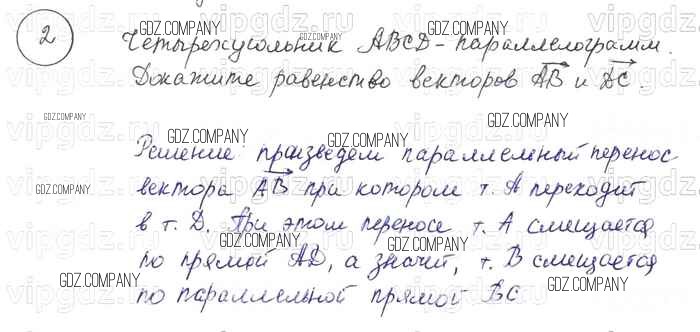 2
Четырехугольник ABCD - параллелограмм.
Докажите равенство векторов AB и DC.
Решение: произведем параллельный перенос
вектора AB при котором т. A переходит
в т. D. При этом переносе т. A смещается
по прямой AD, а значит, т. B смещается
по параллельной прямой BC
GDZ.COMPANY
GDZ.COMPANY
GDZ.COMPANY
GDZ.COMPANY
GDZ.COMPANY
GDZ.COMPANY
GDZ.COMPANY
GDZ.COMPANY
GDZ.COMPANY
GDZ.COMPANY
GDZ.COMPANY
GDZ.COMPANY